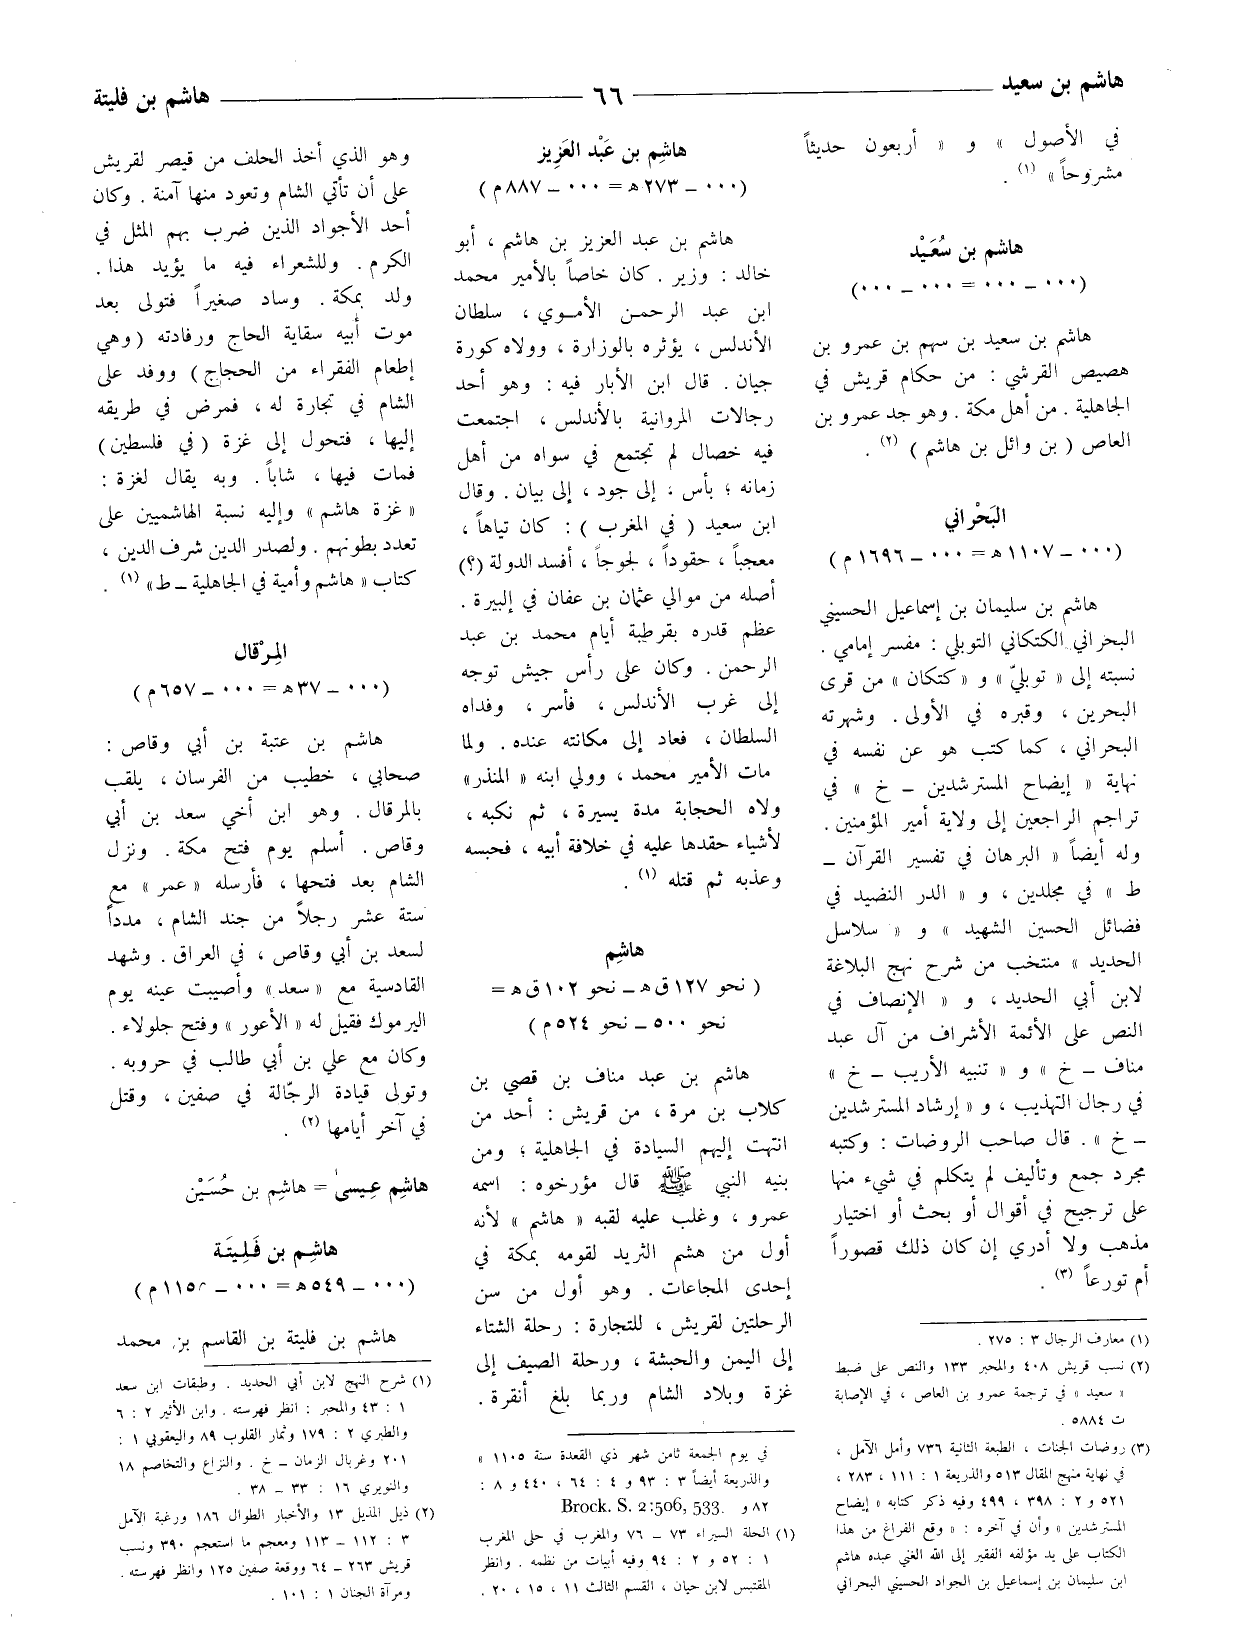 هاشم بن سعيد ـــ ٦٦ ـــ هاشم بن فليتة
في الأصول » و « أربعون حديثاً
مشروحاً » (١) .
هاشم بن سُعَيْد
(٠٠٠ ـ ٠٠٠ = ٠٠٠ ـ ٠٠٠)
هاشم بن سعيد بن سهم بن عمرو بن
هصيص القرشي : من حكام قريش في
الجاهلية . من أهل مكة . وهو جد عمرو بن
العاص ( بن وائل بن هاشم ) (٢) .
البَحْراني
(٠٠٠ ـ ١١٠٧ ه = ٠٠٠ ـ ١٦٩٦ م )
هاشم بن سليمان بن إسماعيل الحسيني
البحراني الكتكاني التوبلي : مفسر إمامي .
نسبته إلى « توبليّ » و « كتكان » من قرى
البحرين ، وقبره في الأولى . وشهرته
البحراني ، كما كتب هو عن نفسه في
نهاية « إيضاح المسترشدين ـ خ » في
تراجم الراجعين إلى ولاية أمير المؤمنين .
وله أيضاً « البرهان في تفسير القرآن ـ
ط » في مجلدين ، و « الدر النضيد في
فضائل الحسين الشهيد » و « سلاسل
الحديد » منتخب من شرح نهج البلاغة
لابن أبي الحديد ، و « الإنصاف في
النص على الأئمة الأشراف من آل عبد
مناف ـ خ » و « تنبيه الأريب ـ خ »
في رجال التهذيب ، و « إرشاد المسترشدين
ـ خ » . قال صاحب الروضات : وكتبه
مجرد جمع وتأليف لم يتكلم في شيء منها
على ترجيح في أقوال أو بحث أو اختيار
مذهب ولا أدري إن كان ذلك قصوراً
أم تورعاً (٣) .
(١) معارف الرجال ٣ : ٢٧٥ .
(٢) نسب قريش ٤٠٨ والمحبر ١٣٣ والنص على ضبط
« سعيد » في ترجمة عمرو بن العاص ، في الإصابة
ت ٥٨٨٤ .
(٣) روضات الجنات ، الطبعة الثانية ٧٣٦ وأمل الآمل ،
في نهاية منهج المقال ٥١٣ والذريعة ١ : ١١١ ، ٢٨٣ ،
٥٢١ و ٢ : ٣٩٨ ، ٤٩٩ وفيه ذكر كتابه « إيضاح
المسترشدين » وأن في آخره : « وقع الفراغ من هذا
الكتاب على يد مؤلفه الفقير إلى الله الغني عبده هاشم
ابن سليمان بن إسماعيل بن الجواد الحسيني البحراني
هاشِم بن عَبْد العَزِيز
(٠٠٠ ـ ٢٧٣ ه = ٠٠٠ ـ ٨٨٧ م )
هاشم بن عبد العزيز بن هاشم ، أبو
خالد : وزير . كان خاصاً بالأمير محمد
ابن عبد الرحمن الأموي ، سلطان
الأندلس ، يؤثره بالوزارة ، وولاه كورة
جيان . قال ابن الأبار فيه : وهو أحد
رجالات المروانية بالأندلس ، اجتمعت
فيه خصال لم تجتمع في سواه من أهل
زمانه ؛ بأس ، إلى جود ، إلى بيان . وقال
ابن سعيد ( في المغرب ) : كان تياهاً ،
معجباً ، حقوداً ، لجوجاً ، أفسد الدولة (؟)
أصله من موالي عثمان بن عفان في إلبيرة .
عظم قدره بقرطبة أيام محمد بن عبد
الرحمن . وكان على رأس جيش توجه
إلى غرب الأندلس ، فأسر ، وفداه
السلطان ، فعاد إلى مكانته عنده . ولما
مات الأمير محمد ، وولي ابنه « المنذر »
ولاه الحجابة مدة يسيرة ، ثم نكبه ،
لأشياء حقدها عليه في خلافة أبيه ، فحبسه
وعذبه ثم قتله (١) .
هاشِم
( نحو ١٢٧ ق ه ـ نحو ١٠٢ ق ه =
نحو ٥٠٠ ـ نحو ٥٢٤ م )
هاشم بن عبد مناف بن قصي بن
كلاب بن مرة ، من قريش : أحد من
انتهت إليهم السيادة في الجاهلية ؛ ومن
بنيه النبي ﷺ قال مؤرخوه : اسمه
عمرو ، وغلب عليه لقبه « هاشم » لأنه
أول من هشم الثريد لقومه بمكة في
إحدى المجاعات . وهو أول من سن
الرحلتين لقريش ، للتجارة : رحلة الشتاء
إلى اليمن والحبشة ، ورحلة الصيف إلى
غزة وبلاد الشام وربما بلغ أنقرة .
في يوم الجمعة ثامن شهر ذي القعدة سنة ١١٠٥ »
والذريعة أيضاً ٣ : ٩٣ و ٤ : ٦٤ ، ٤٤٠ و ٨ :
٨٢ و Brock. S. 2:506, 533.
(١) الحلة السيراء ٧٣ ـ ٧٦ والمغرب في حلى المغرب
١ : ٥٢ و ٢ : ٩٤ وفيه أبيات من نظمه . وانظر
المقتبس لابن حيان ، القسم الثالث ١١ ، ١٥ ، ٢٠ .
وهو الذي أخذ الحلف من قيصر لقريش
على أن تأتي الشام وتعود منها آمنة . وكان
أحد الأجواد الذين ضرب بهم المثل في
الكرم . وللشعراء فيه ما يؤيد هذا .
ولد بمكة . وساد صغيراً فتولى بعد
موت أبيه سقاية الحاج ورفادته (وهي
إطعام الفقراء من الحجاج) ووفد على
الشام في تجارة له ، فمرض في طريقه
إليها ، فتحول إلى غزة ( في فلسطين )
فمات فيها ، شاباً . وبه يقال لغزة :
« غزة هاشم » وإليه نسبة الهاشميين على
تعدد بطونهم . ولصدر الدين شرف الدين ،
كتاب « هاشم وأمية في الجاهلية ـ ط » (١) .
المِرْقال
(٠٠٠ ـ ٣٧ ه = ٠٠٠ ـ ٦٥٧ م )
هاشم بن عتبة بن أبي وقاص :
صحابي ، خطيب من الفرسان ، يلقب
بالمرقال . وهو ابن أخي سعد بن أبي
وقاص . أسلم يوم فتح مكة . ونزل
الشام بعد فتحها ، فأرسله « عمر » مع
ستة عشر رجلاً من جند الشام ، مدداً
لسعد بن أبي وقاص ، في العراق . وشهد
القادسية مع « سعد » وأصيبت عينه يوم
اليرموك فقيل له « الأعور » وفتح جلولاء .
وكان مع علي بن أبي طالب في حروبه .
وتولى قيادة الرجّالة في صفين ، وقتل
في آخر أيامها (٢) .
هاشِم عِيسىٰ = هاشِم بن حُسَيْن
هاشِم بن فَلِيتَة
(٠٠٠ ـ ٥٤٩ ه = ٠٠٠ ـ م )
هاشم بن فليتة بن القاسم بن محمد
(١) شرح النهج لابن أبي الحديد . وطبقات ابن سعد
١ : ٤٣ والمحبر : انظر فهرسته . وابن الأثير ٢ : ٦
والطبري ٢ : ١٧٩ وثمار القلوب ٨٩ واليعقوبي ١ :
٢٠١ وغربال الزمان ـ خ . والنزاع والتخاصم ١٨
والنويري ١٦ : ٣٣ ـ ٣٨ .
(٢) ذيل المذيل ١٣ والأخبار الطوال ١٨٦ ورغبة الآمل
٣ : ١١٢ ـ ١١٣ ومعجم ما استعجم ٣٩٠ ونسب
قريش ٢٦٣ ـ ٦٤ ووقعة صفين ١٢٥ وانظر فهرسته .
ومرآة الجنان ١ : ١٠١ .